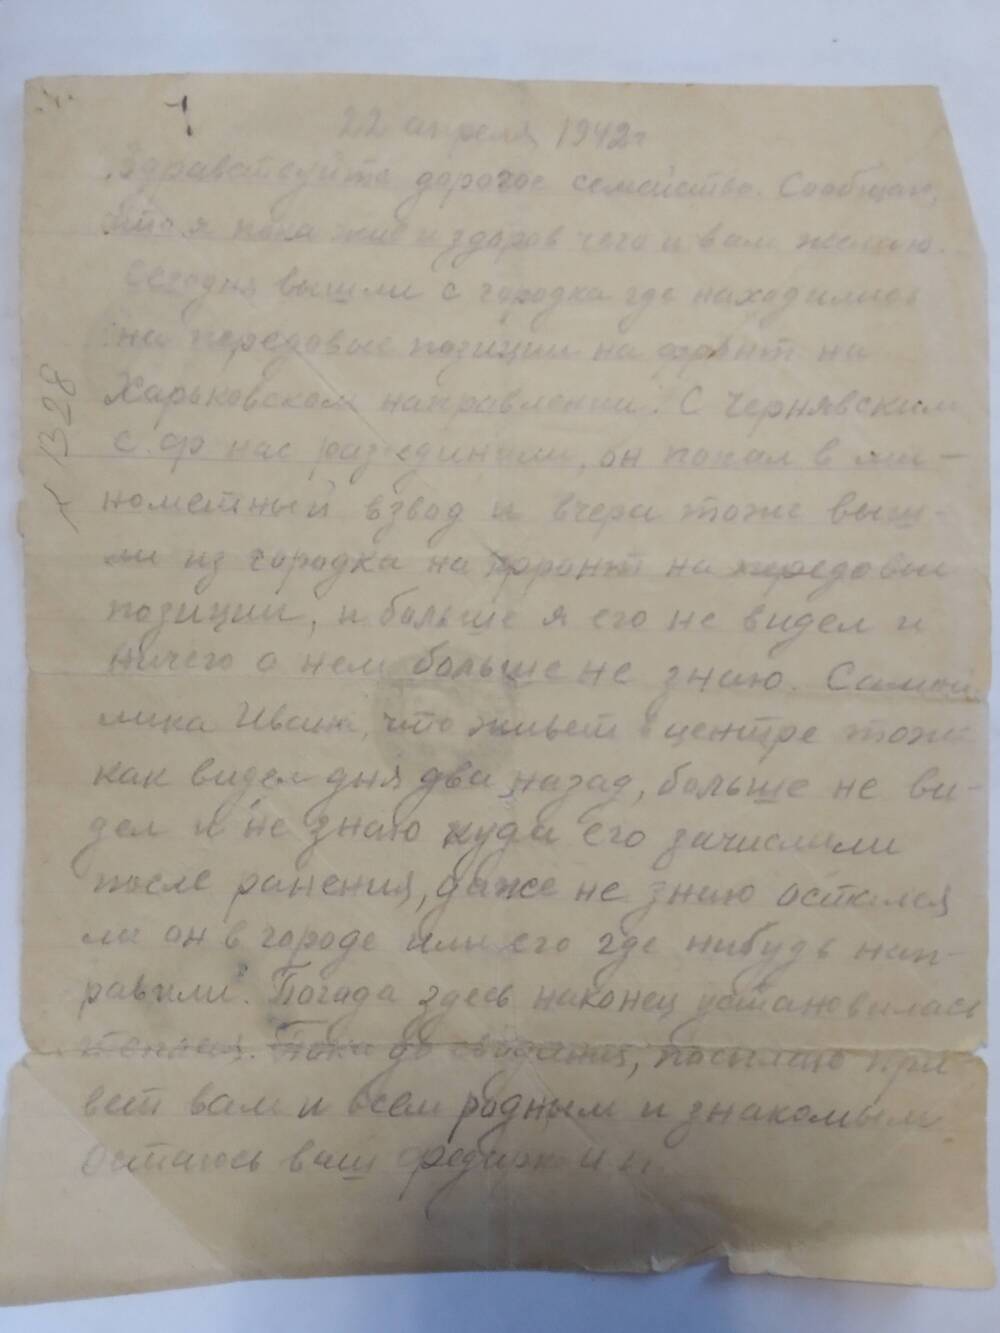 22 апреля 1942 г
Здравствуйте дорогое семейство. Сообщаю,
что я пока жив и здоров чего и вам желаю.
Сегодня вышли с городка где находились
на передовые позиции на фронт на
Харьковском направлении. С Чернявским
С. Ф нас разъединили, он попал в ми-
нометный взвод и вчера тоже выш-
ли из городка на фронт на передовые
позиции, и больше я его не видел и
ничего о нем больше не знаю.
Ивана, что живет в центре тоже
как видел дня два назад, больше не ви-
дел и не знаю куда его зачислили
после ранения, даже не знаю остался
ли он в городе или его где нибудь нап-
равили. Погода здесь наконец установилась
теплая. Пока до свидания, посылаю при
вет вам и всем родным и знакомым
Остаюсь ваш
х 1328